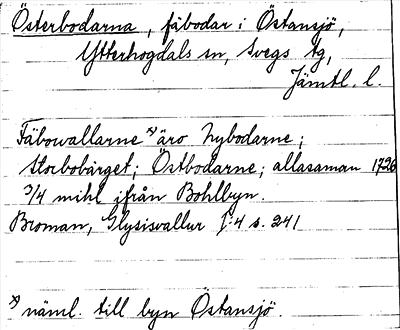 Österbodarna, fäbodar i Östansjö,
Ytterhogdals sn, Svegs tg,
Jämtl. l.
Fäbowallarne *) äro Nybodarne;
Storbobärget; Östbodarne; allasaman 1726
3/4 mihl ifrån Bohlbyn.
Broman, Glysisvallur I:4 s. 241
*) näml. till byn Östansjö.